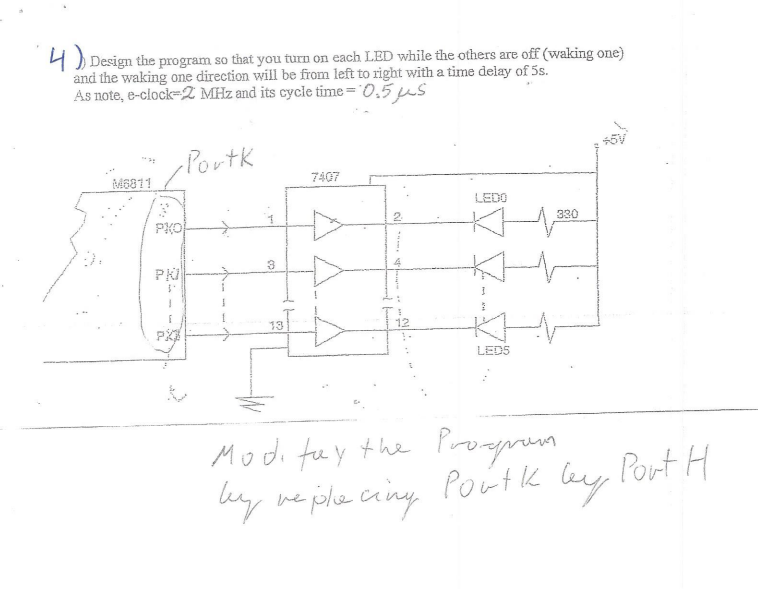 4) Design the program so that you turn on each LED while the others are off (waking one)
and the waking one direction will be from left to right with a time delay of 5s.
As note, e-clock=2 MHz and its cycle time = 0.5 µs
+5V
PortK
M6811
7407
LED0
PK0
1
2
330
PK1
3
4
13
12
LED5
Modifay the Program
by replacing PortK by Port H